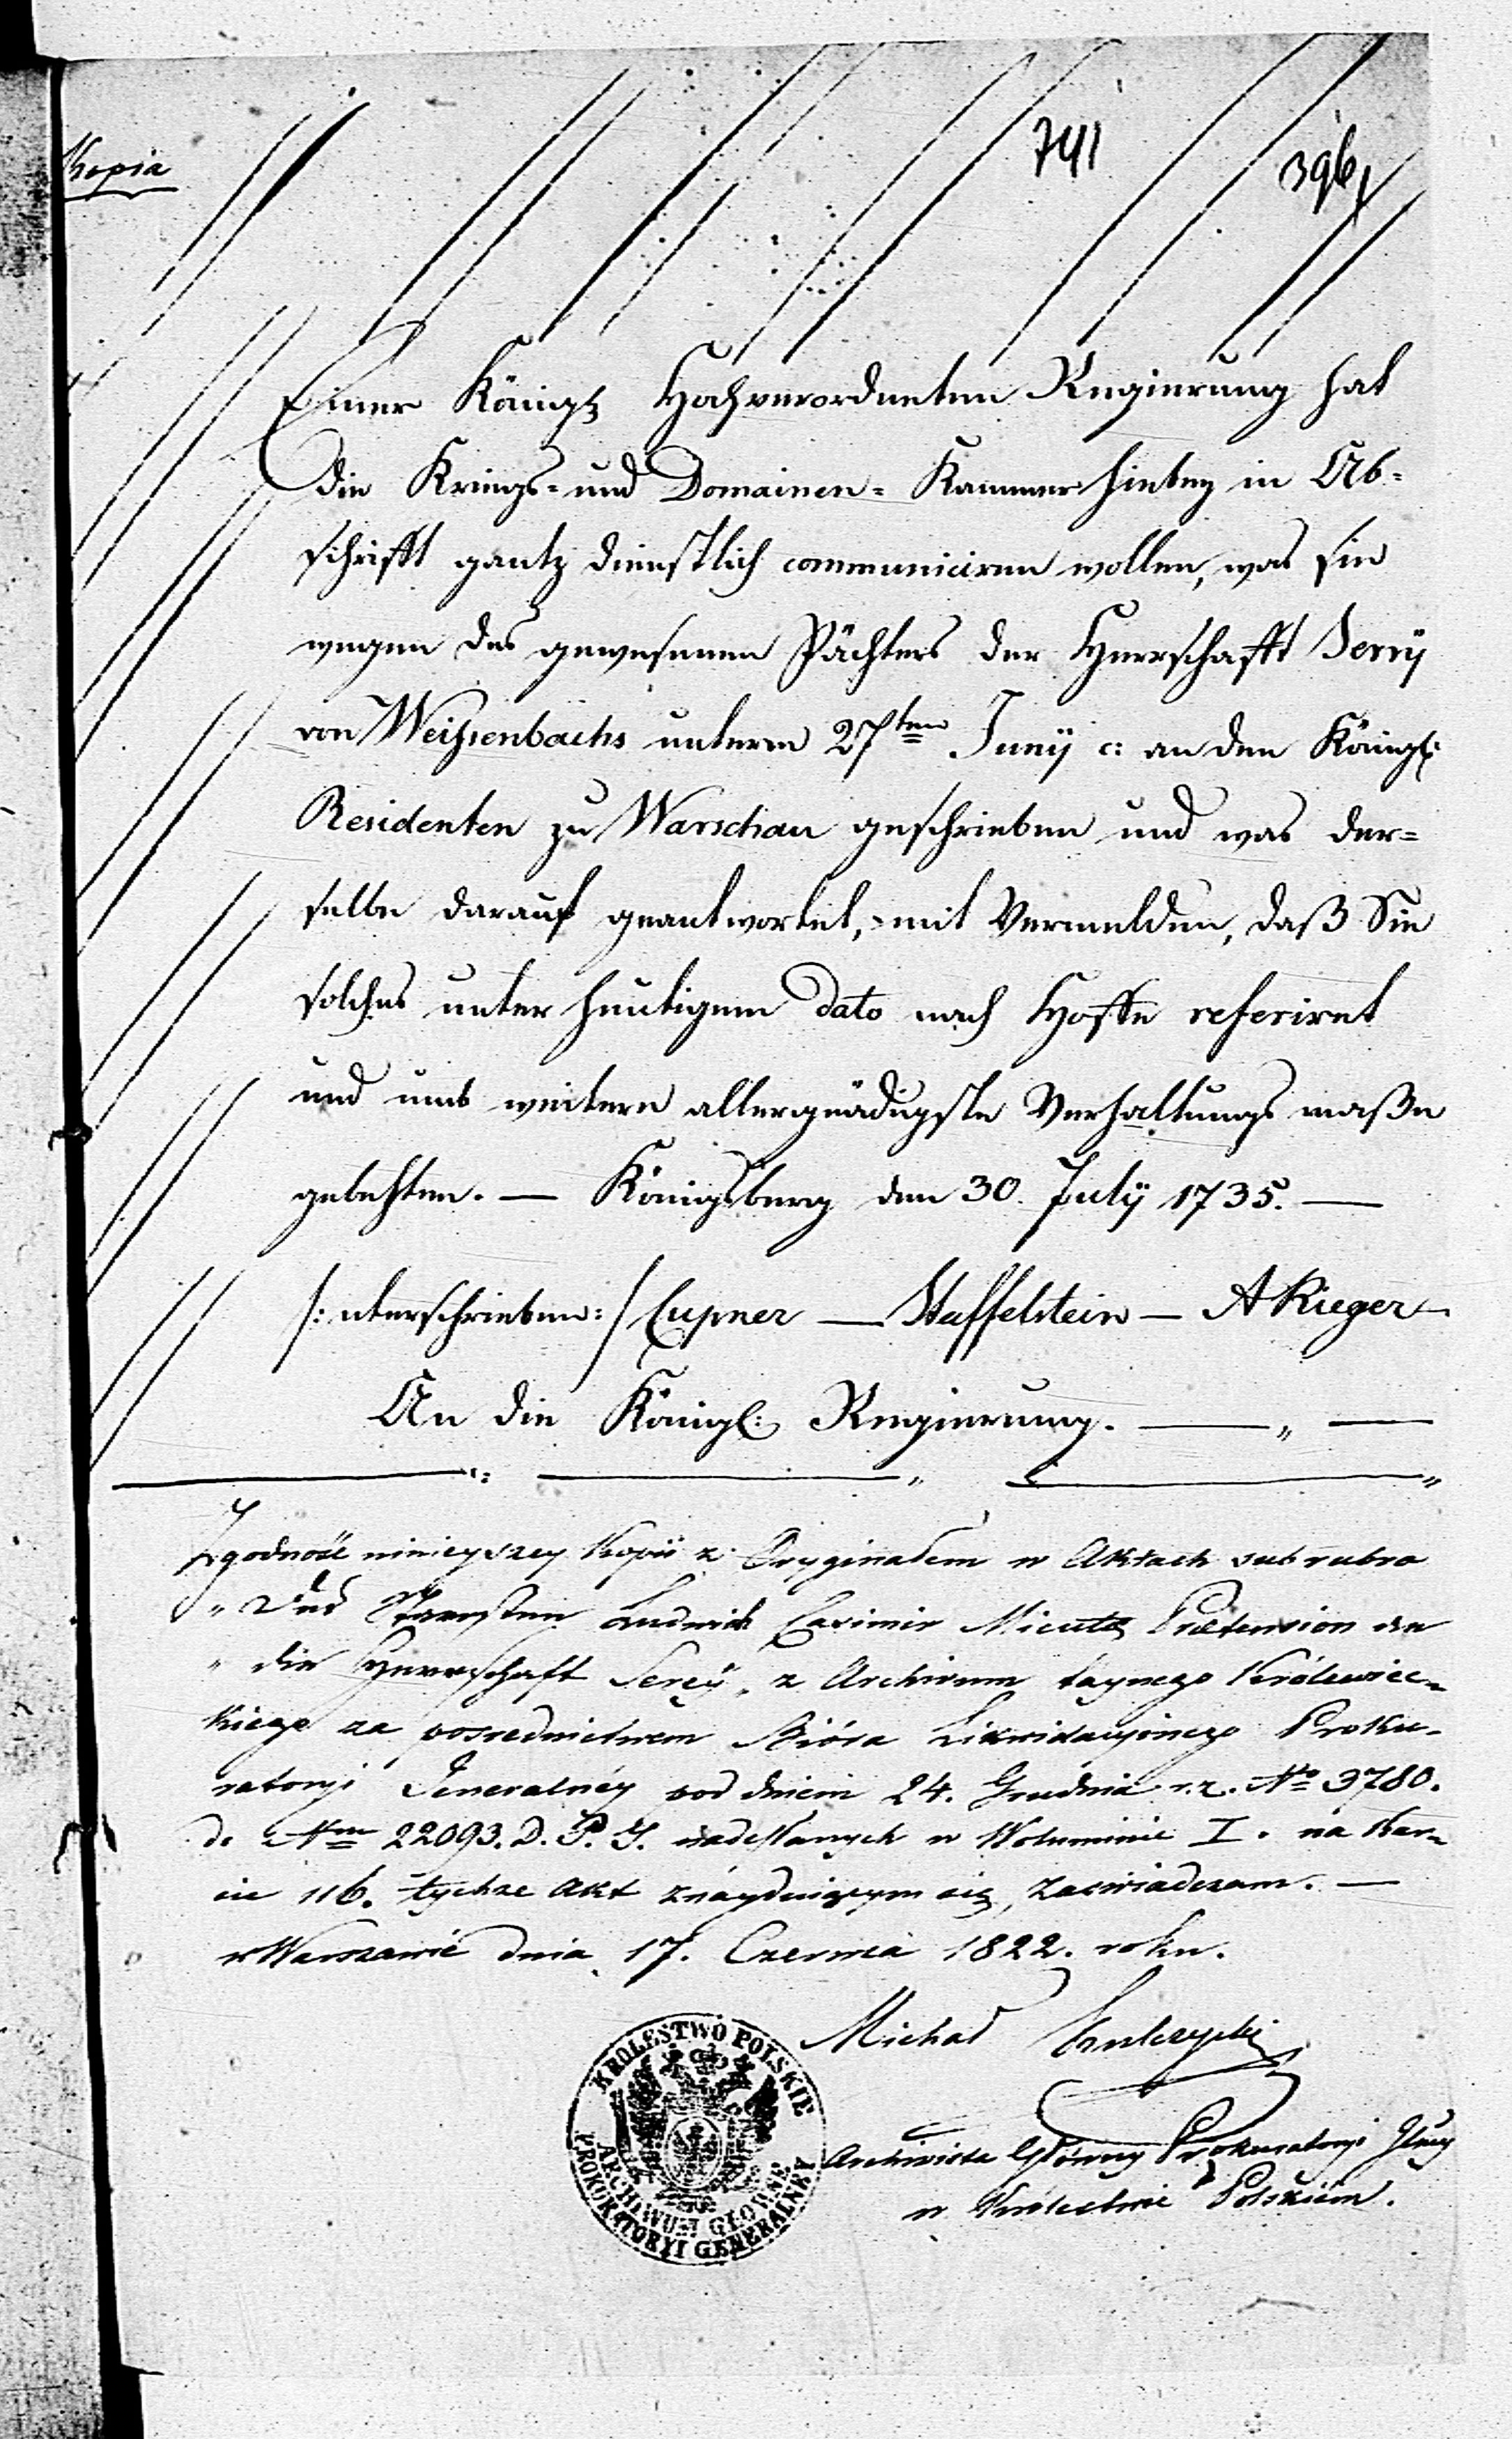 Kopia
741
396
Einer Königl Hochverordneten Regierung hat
die Kriegs- und Domainen- Kammer hiebey in Ab-
schrifft gantz dienstlich communiciren wollen, was sie
wegen des gewesenen Pächters der Herrschafft Serrÿ
von Weißenbachs unterm 27ten Junÿ c: an den Königl:
Residenten zu Warschau geschrieben und was der-
selbe darauf geantwortet, mit Vermelden, daß Sie
solches unter heutigem dato nach Hoffe referiret
und umb weitere allergnädigste Verhaltungs maße
gebehten. — Königsberg den 30. Julÿ 1735. —
/: nterschrieben: / Cupner — Staffelstein — A Rieger —
An die Königl: Regierung. — „ —
Zgodność ninieyszey Kopii z Oryginałem w Aktach sub rubro
„ Des Starosten Ludwich Casimir Micuta Prætension an
„ die Herrschaft Sereÿ „ z Archivum taynego Królewiec-
kiego za posrednictwem Bióra Likwidacyinego Proku-
ratoryi Jeneralnéy pod dniem 24. Grudnia r. z. No 3780.
do Nru 22093. D. P. J. nadesłanych w Woluminie I. na Kar-
cie 116. tychże Akt znayduiącym się, zaswiadczam. —
w Warszawie dnia 17. Czerwca 1822. roku.
Michał
Archiwista Główny Prokuratoryi Jlney
w Królestwie Polskiém.
KROLESTWO POLSKIE
ARCHIWUM GŁOWNE
PROKURATORYI GENERALNEY